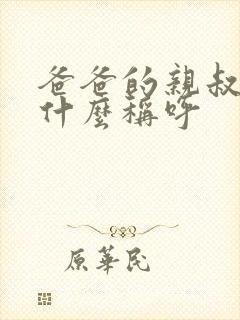 爸爸的親叔
什麼稱呼
原華民